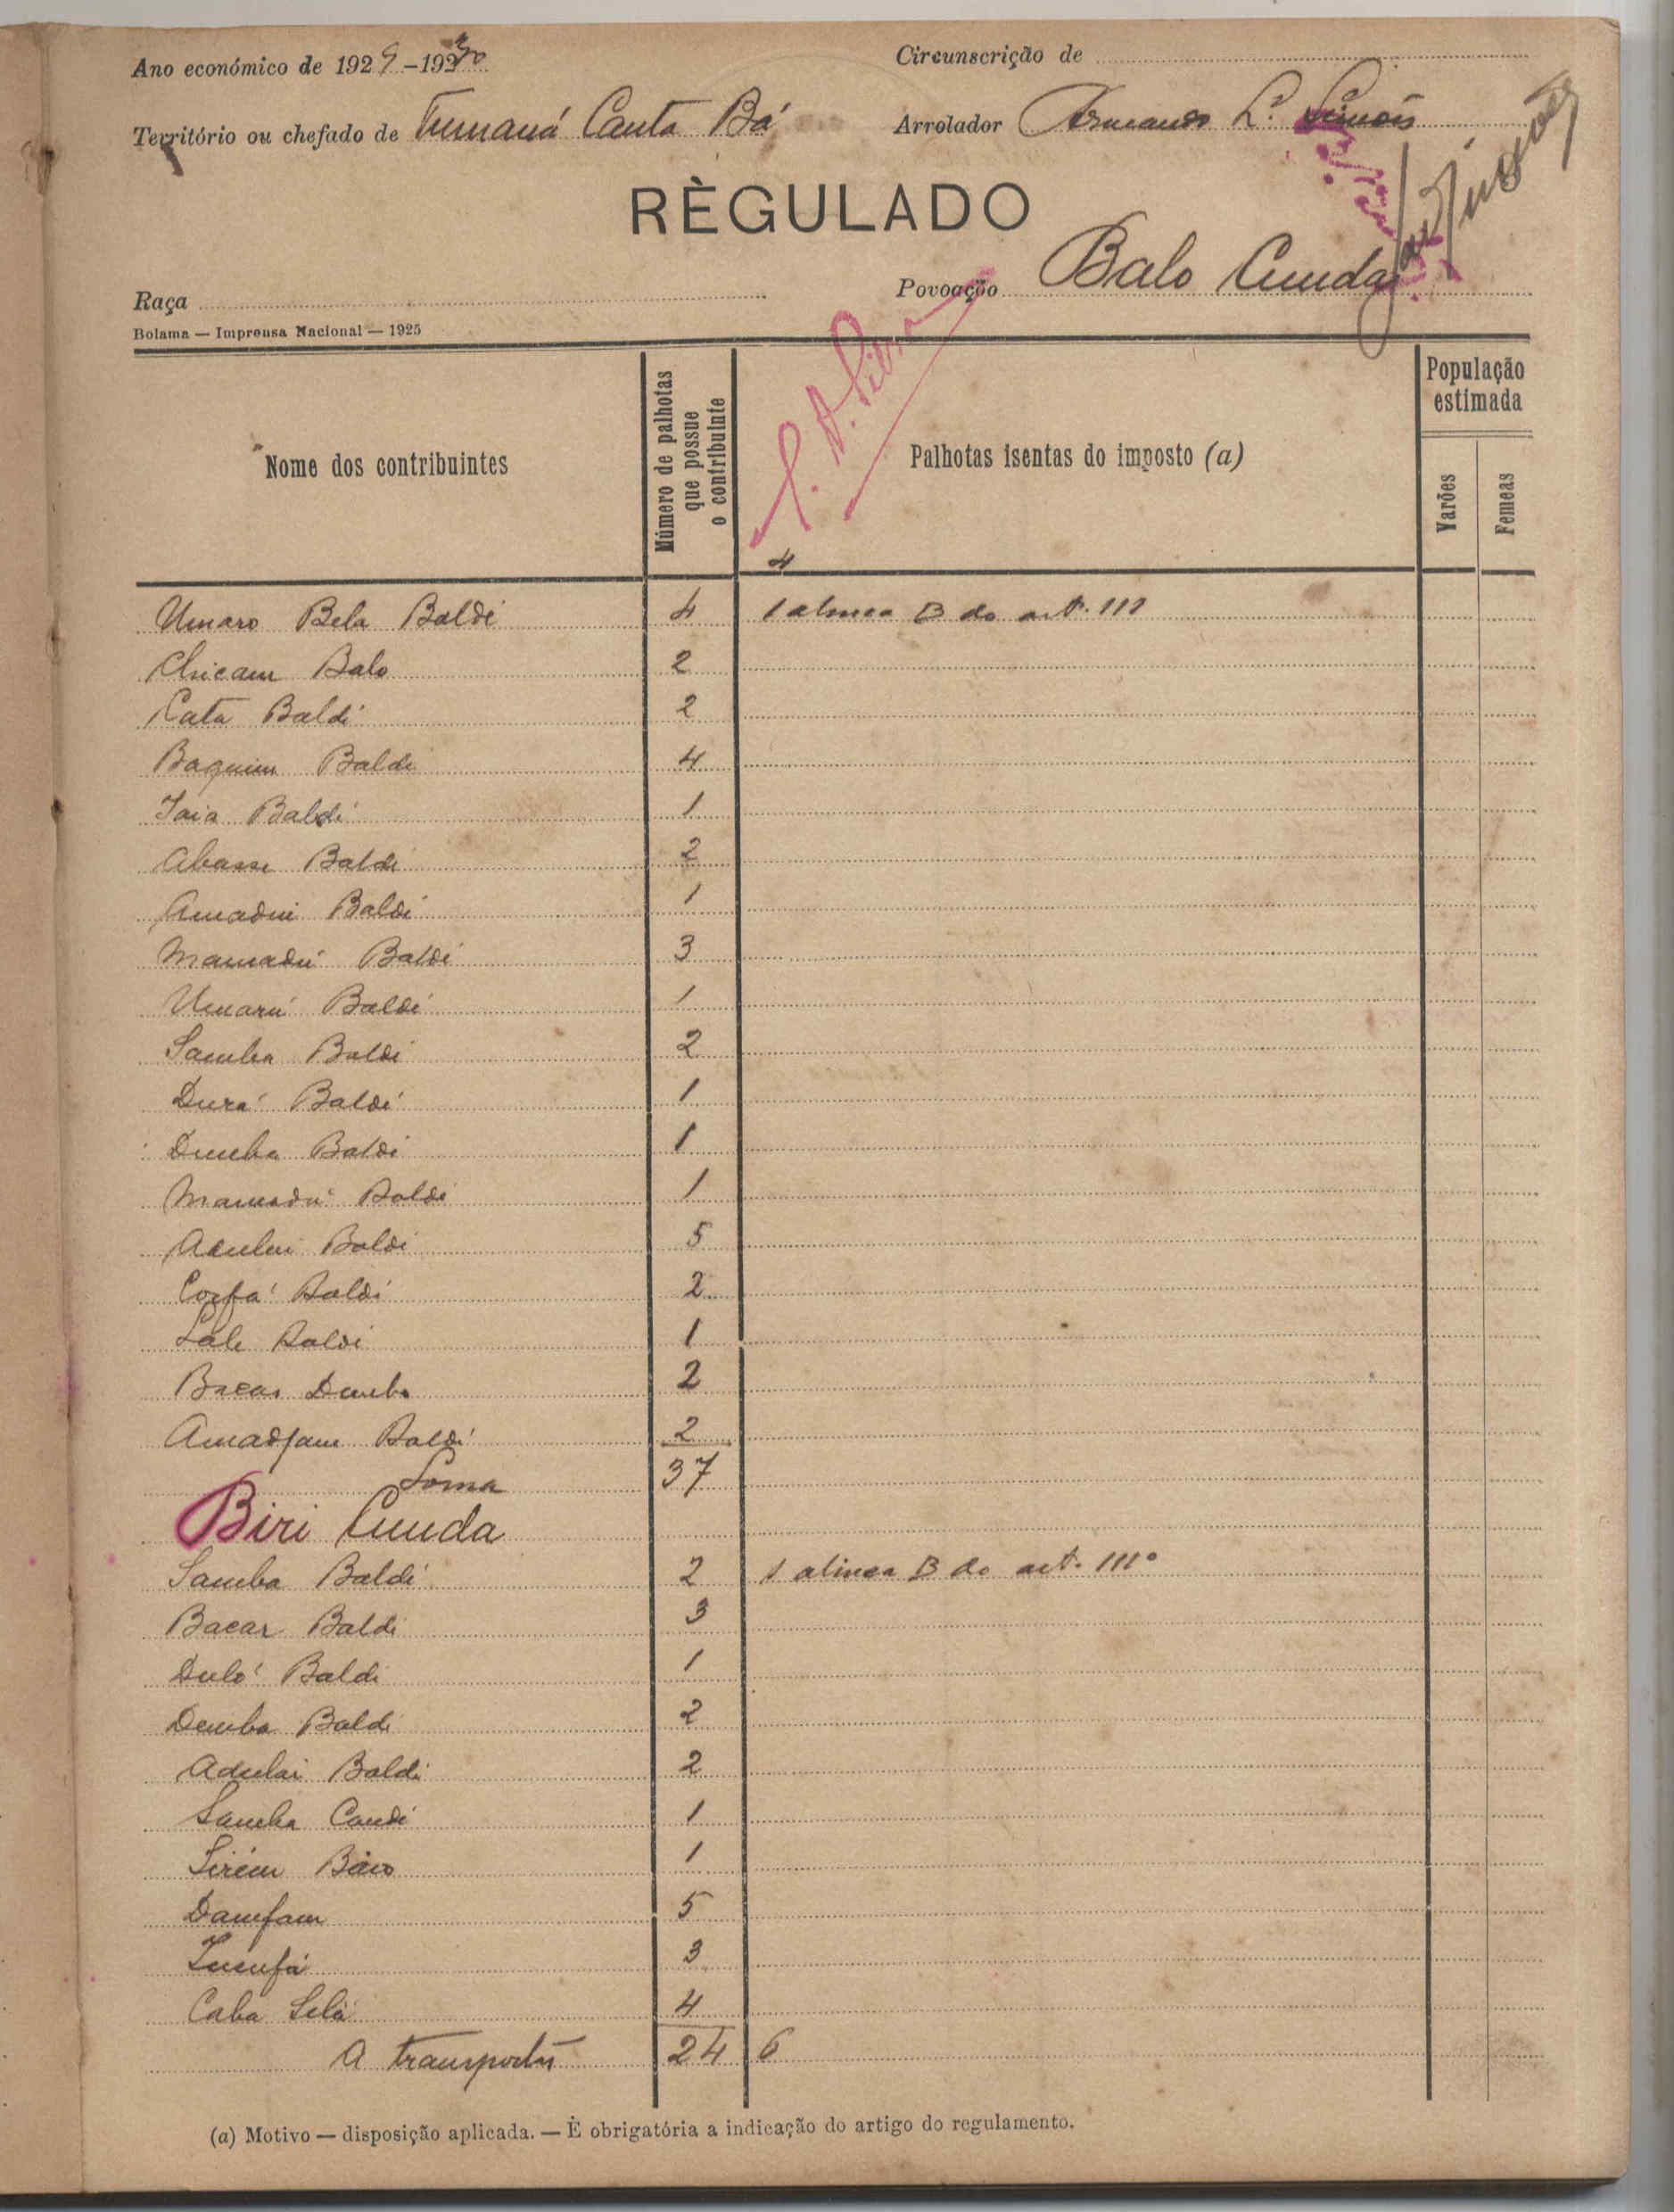 Ano económico de 1929-1930
Circunscrição de
Território ou chefado de Tumaná Canta Bá
Arrolador Armando L. Simões
RÈGULADO
Raça
Povoação Balo Cunda
Bolama — Imprensa Nacional — 1925
Nome dos contribuintes
Número de palhotas que possue o contribuinte
Palhotas isentas do imposto (a)
População estimada
Varões
Femeas
4
Umaro Bela Baldé 4 1 alinea B do art. 111
Chicam Balo 2
Cata Baldé 2
Baquim Baldé 4
Iaia Baldé 1
Abasse Baldé 2
Amadui Baldé 1
Mamadú Baldé 3
Umarú Baldé 1
Samba Baldé 2
Durá Baldé 1
Demba Baldé 1
Mamadú Baldé 1
Adulai Baldé 5
Baldé 2
Sale Baldé 1
Bacar Demba 2
Amadjam Baldé 2
Soma 37
Biri Cunda
Samba Baldé 2 1 alinea B do art. 111º
Bacar Baldé 3
Duló Baldé 1
Demba Baldé 2
Adulai Baldé 2
Samba Candé 1
Sirém 1
Damfam 5
Iusufá 3
Caba Selá 4
A transportar 24 6
(a) Motivo — disposição aplicada. — É obrigatória a indicação do artigo do regulamento.